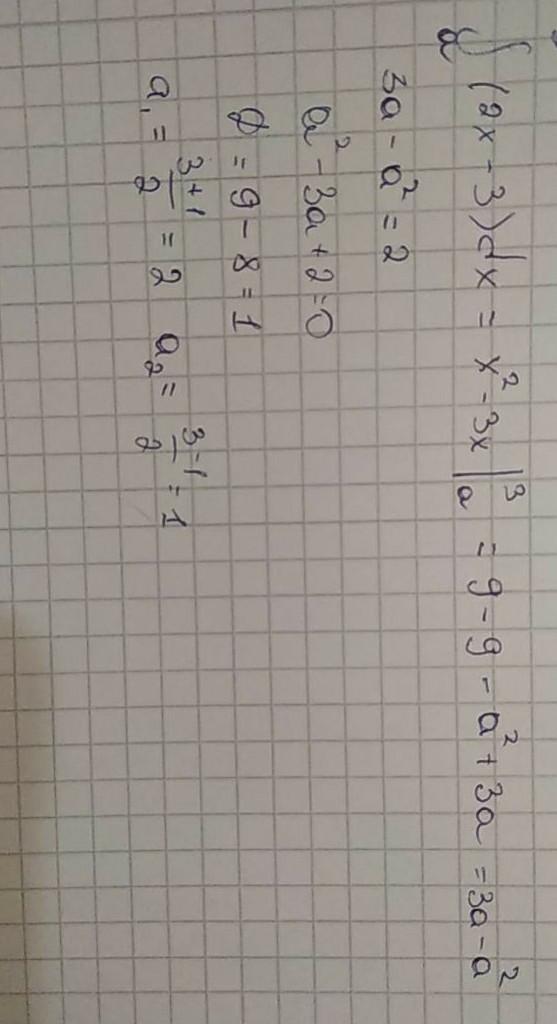 ∫ₐ³ (2x - 3)dx = x² - 3x |ₐ³ = 9 - 9 - a² + 3a = 3a - a²
3a - a² = 2
a² - 3a + 2 = 0
D = 9 - 8 = 1
a₁ = (3+1)/2 = 2   a₂ = (3-1)/2 = 1